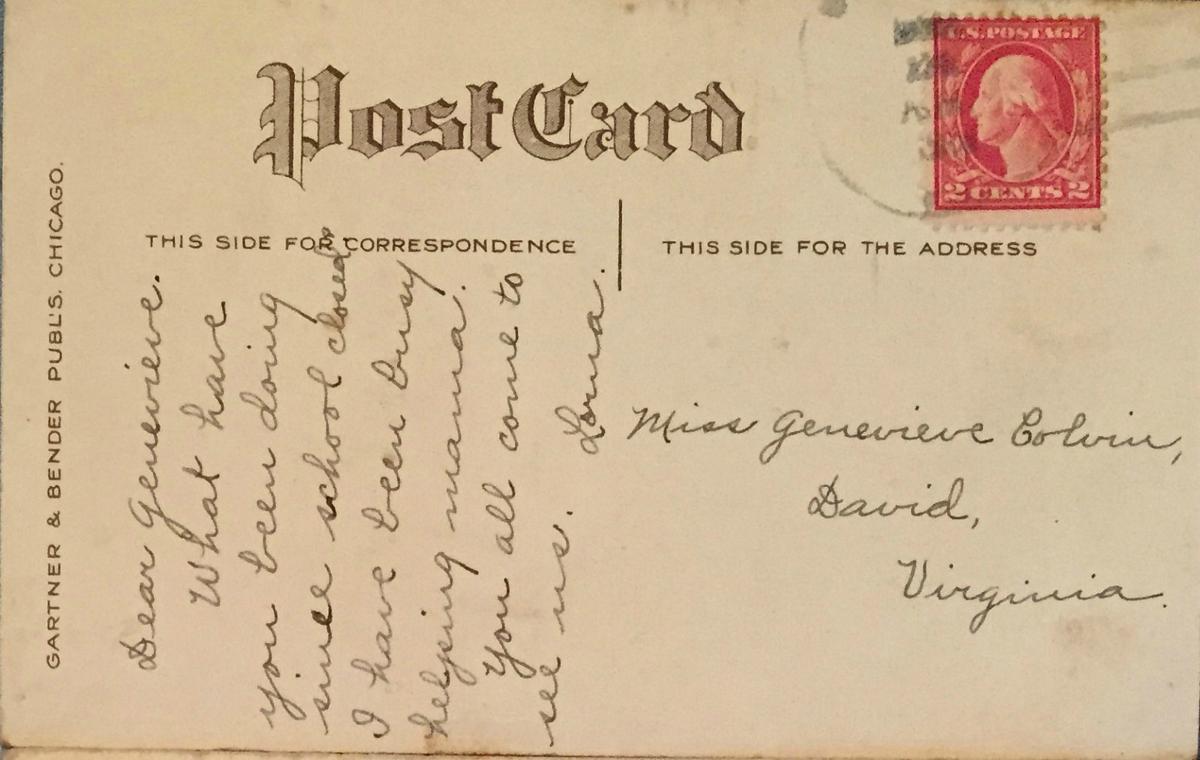 Post Card
THIS SIDE FOR CORRESPONDENCE
THIS SIDE FOR THE ADDRESS
U.S. POSTAGE
2 CENTS 2
GARTNER & BENDER PUBL'S. CHICAGO.
Dear Genevieve.
What have
you been doing
since school closed?
I have been busy
helping mama.
You all come to
see us.
Lorna.
Miss Genevieve Colvin,
David,
Virginia.